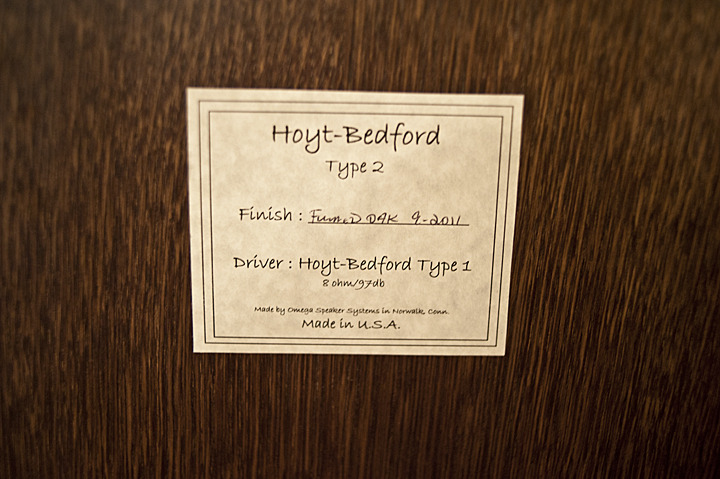 Hoyt-Bedford
Type 2
Finish : Fumed OAK 9-2011
Driver : Hoyt-Bedford Type 1
8 ohm/97db
Made by Omega Speaker Systems in Norwalk, Conn.
Made in U.S.A.